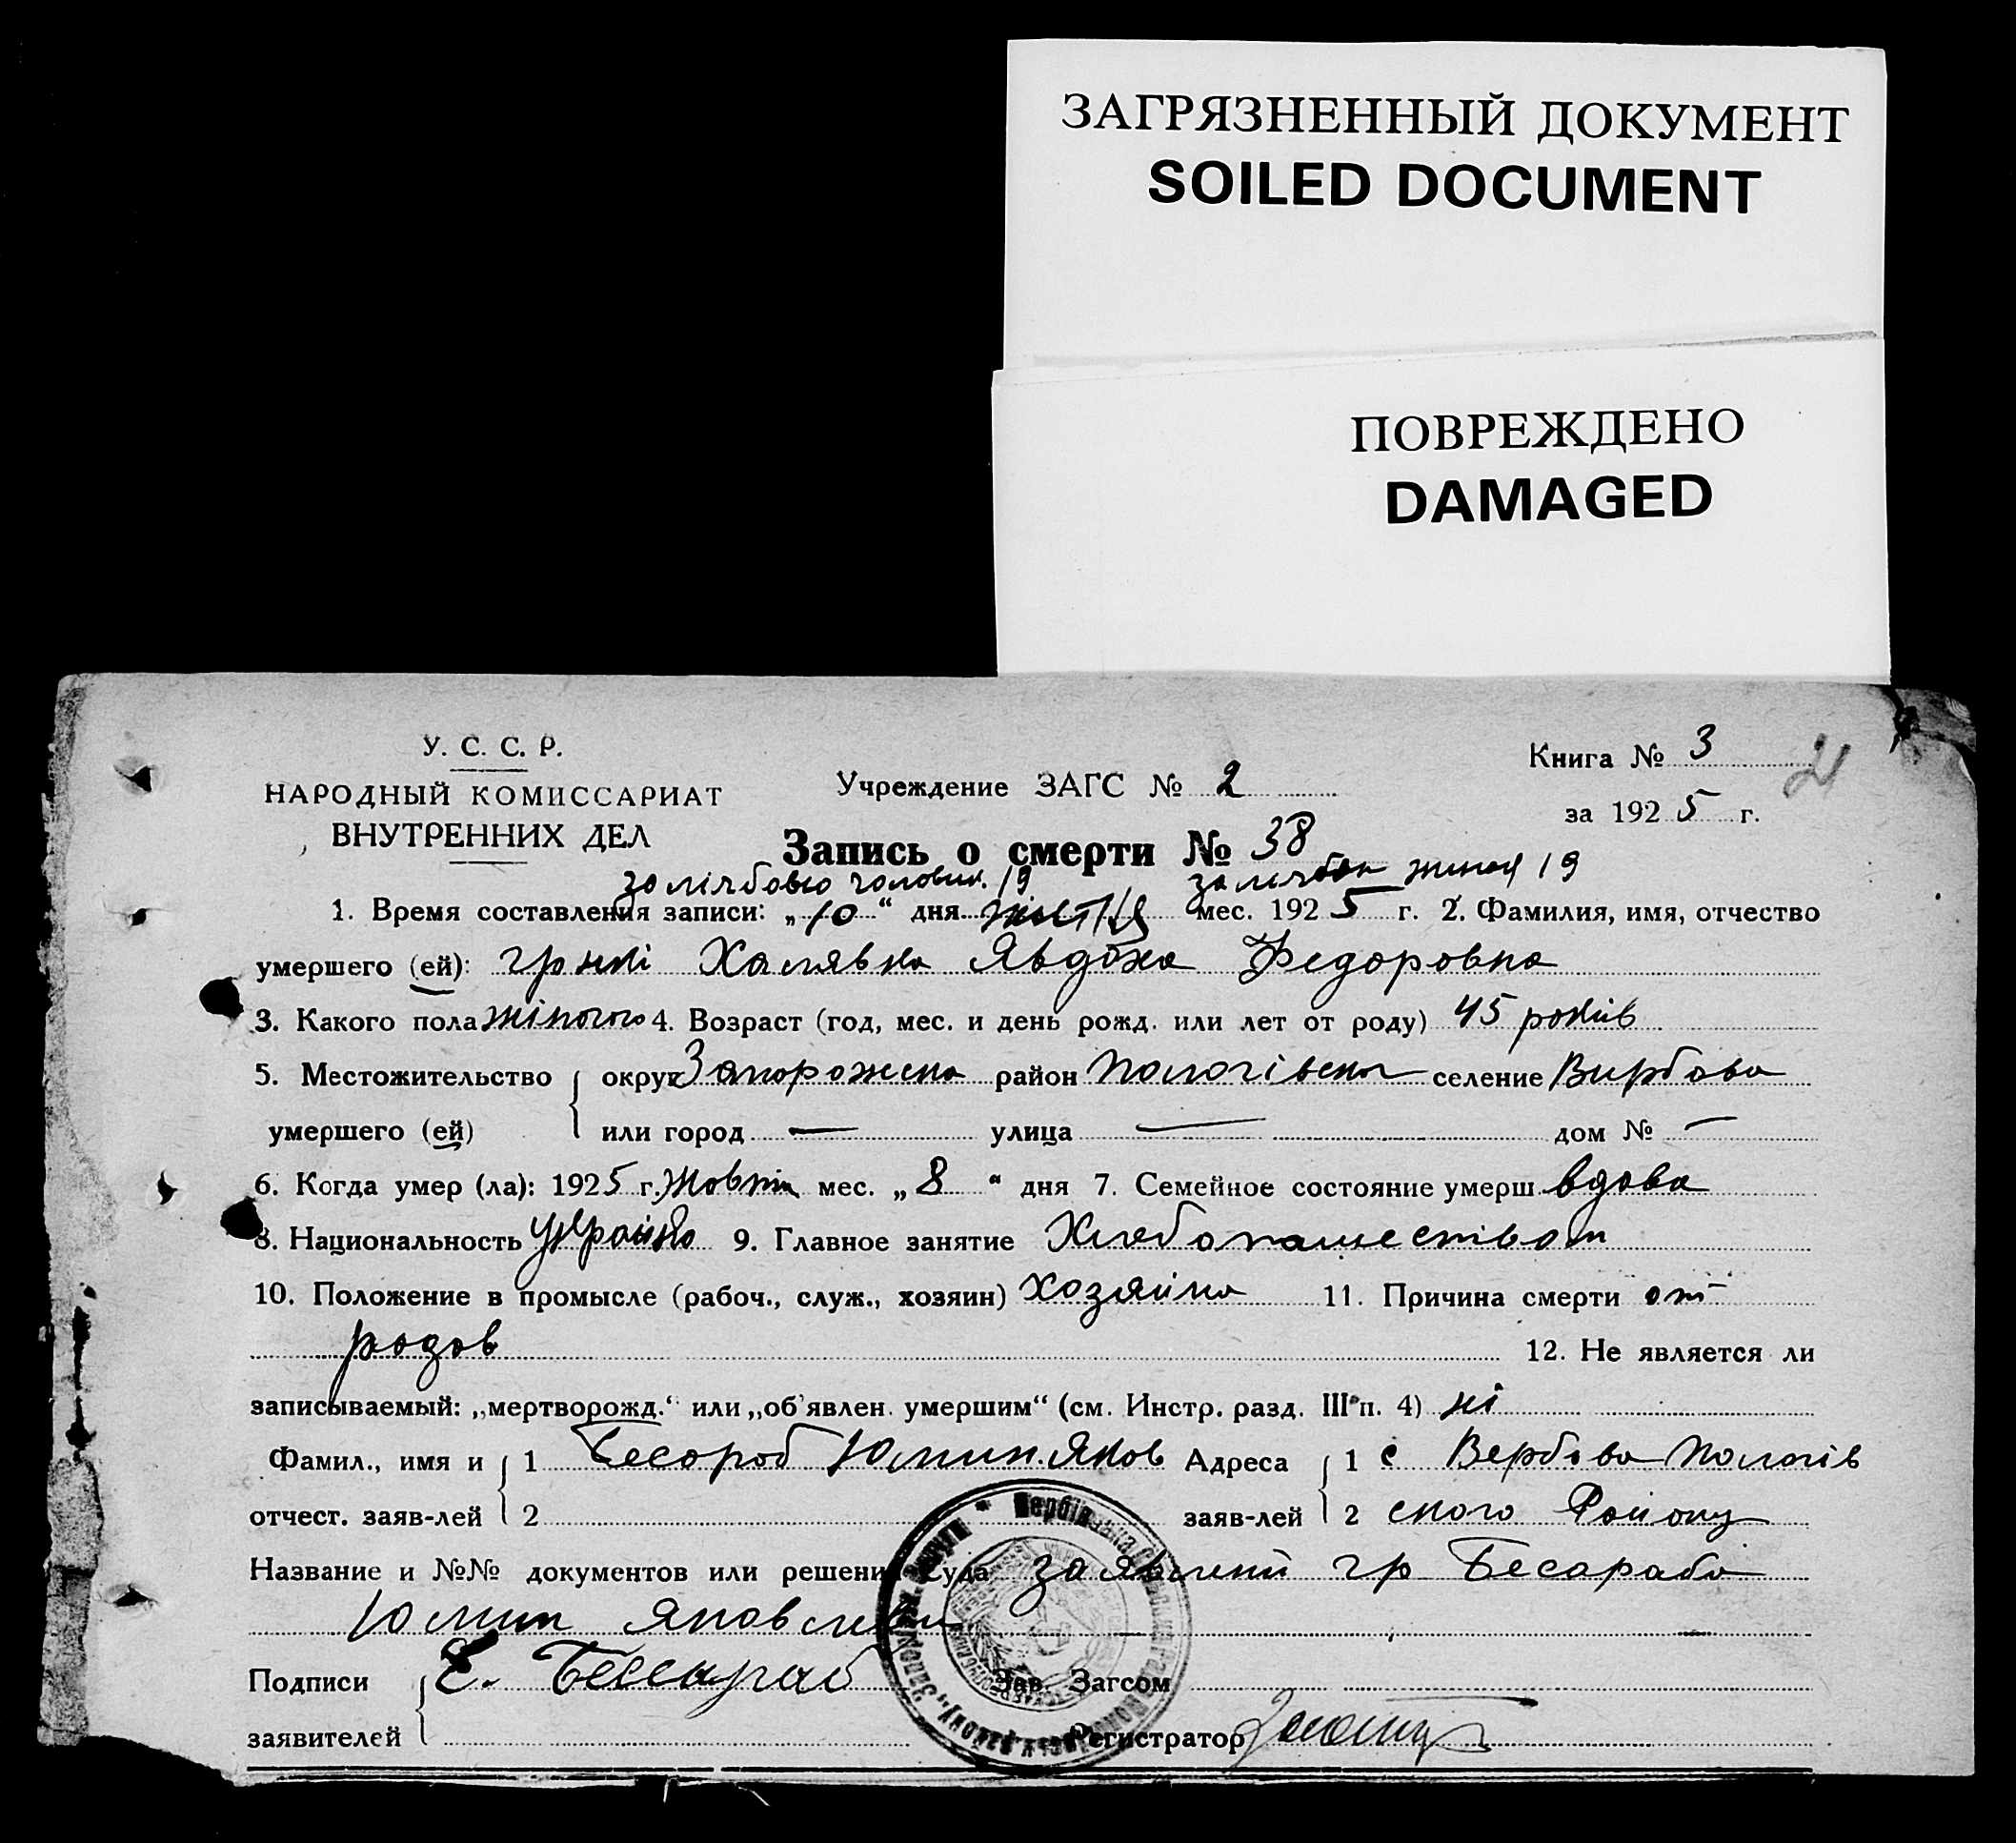 ЗАГРЯЗНЕННЫЙ ДОКУМЕНТ
SOILED DOCUMENT
ПОВРЕЖДЕНО
DAMAGED
У. С. С. Р.
НАРОДНЫЙ КОМИССАРИАТ
ВНУТРЕННИХ ДЕЛ
Учреждение ЗАГС № 2
Книга № 3
за 1925 г.
21
Запись о смерти № 38
19 19
1. Время составления записи: „10“ дня мес. 1925 г. 2. Фамилия, имя, отчество
умершего (ей): Халявка Явдоха Федоровна
3. Какого пола жіночого 4. Возраст (год, мес. и день рожд. или лет от роду) 45 років
5. Местожительство округ Запорожська район Пологівськ селение Вирбова
умершего (ей) или город — улица — дом № —
6. Когда умер (ла): 1925 г. Жовтня мес. „8“ дня 7. Семейное состояние умерш вдова
8. Национальность 9. Главное занятие Хлебопашество
10. Положение в промысле (рабоч., служ., хозяин) хозяйка 11. Причина смерти от
родов 12. Не является ли
записываемый: „мертворожд.“ или „об'явлен умершим“ (см. Инстр. разд. III п. 4) ні
Фамил., имя и 1 Бесароб Яков Адреса 1 с Вербова Пологів
отчест. заяв-лей 2 заяв-лей 2 ского Району
Название и №№ документов или решени суда заявлений гр Бесараба
Подписи Е. Бессараб Зав. Загсом
заявителей Регистратор